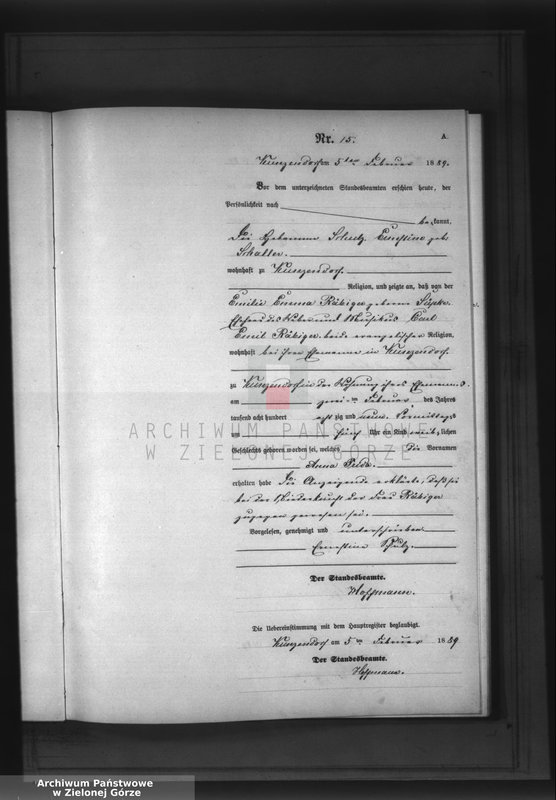 Nr. 15.
A.
Kunzendorf am 5ten Februar 1889.
Vor dem unterzeichneten Standesbeamten erschien heute, der
Persönlichkeit nach
bekannt,
die Hebamme Schulz Ernestine geb.
wohnhaft zu Kunzendorf
Religion, und zeigte an, daß von der
Emilie Emma Räbiger geborne
Ehefrau des Weber und Musikus Carl
Emil Räbiger beide evangelischer Religion,
wohnhaft bei ihrem Ehemanne in Kunzendorf
zu Kunzendorf in der Wohnung ihres Ehemannes
am zwei ten Februar des Jahres
tausend acht hundert acht zig und neun Vormittags
um fünf Uhr ein Kind weiblichen
Geschlechts geboren worden sei, welches die Vornamen
Anna
erhalten habe. Die Anzeigende erklärte, daß sie
bei der Niederkunft der Frau Räbiger
zugegen gewesen sei.
Vorgelesen, genehmigt und unterschrieben
Ernestine Schulz.
Der Standesbeamte.
Hoffmann.
Die Uebereinstimmung mit dem Hauptregister beglaubigt.
Kunzendorf am 5ten Februar 1889
Der Standesbeamte.
Hoffmann.
ARCHIWUM PAŃSTWOWE
W ZIELONEJ GÓRZE
Archiwum Państwowe
w Zielonej Górze